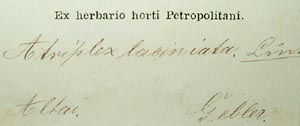 Ex herbario horti Petropolitani.
Atriplex laciniata. Lin.
Altai. Gebler.